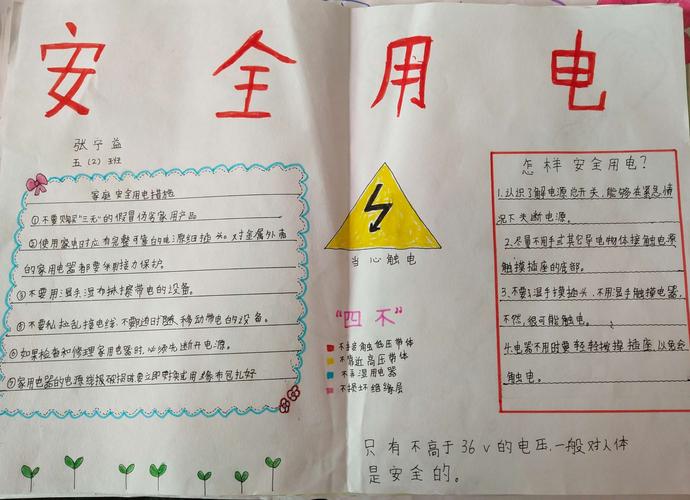 安全用电
张宁益
五（2）班
家庭安全用电措施
①不要购买"三无"的假冒伪劣家用产品
②使用家电时应有完整可靠的电源线插头。对金属外壳
的家用电器都要采用接力保护。
③不要用湿手湿布擦带电的设备。
④不要私拉乱接电线,不要随时移动带电的设备。
⑤如果检查和修理家用电器时,必须先断开电源。
⑦家用电器的电源线破损时要立即更换或用绝缘布包扎好
当心触电
"四不"
不接触低压带体
不靠近高压带体
不弄湿用电器
不损坏绝缘层
怎样安全用电?
1.认识了解电源总开关,能够在紧急情
况下关断电源。
2.尽量不用手或其它导电物体接触电源
触摸插座的底部。
3.不要湿手摸插头,不用湿手触摸电器,
不然,很可能触电。
4.电器不用时要轻轻拔掉插座,以免会
触电。
只有不高于36v的电压,一般对人体
是安全的。